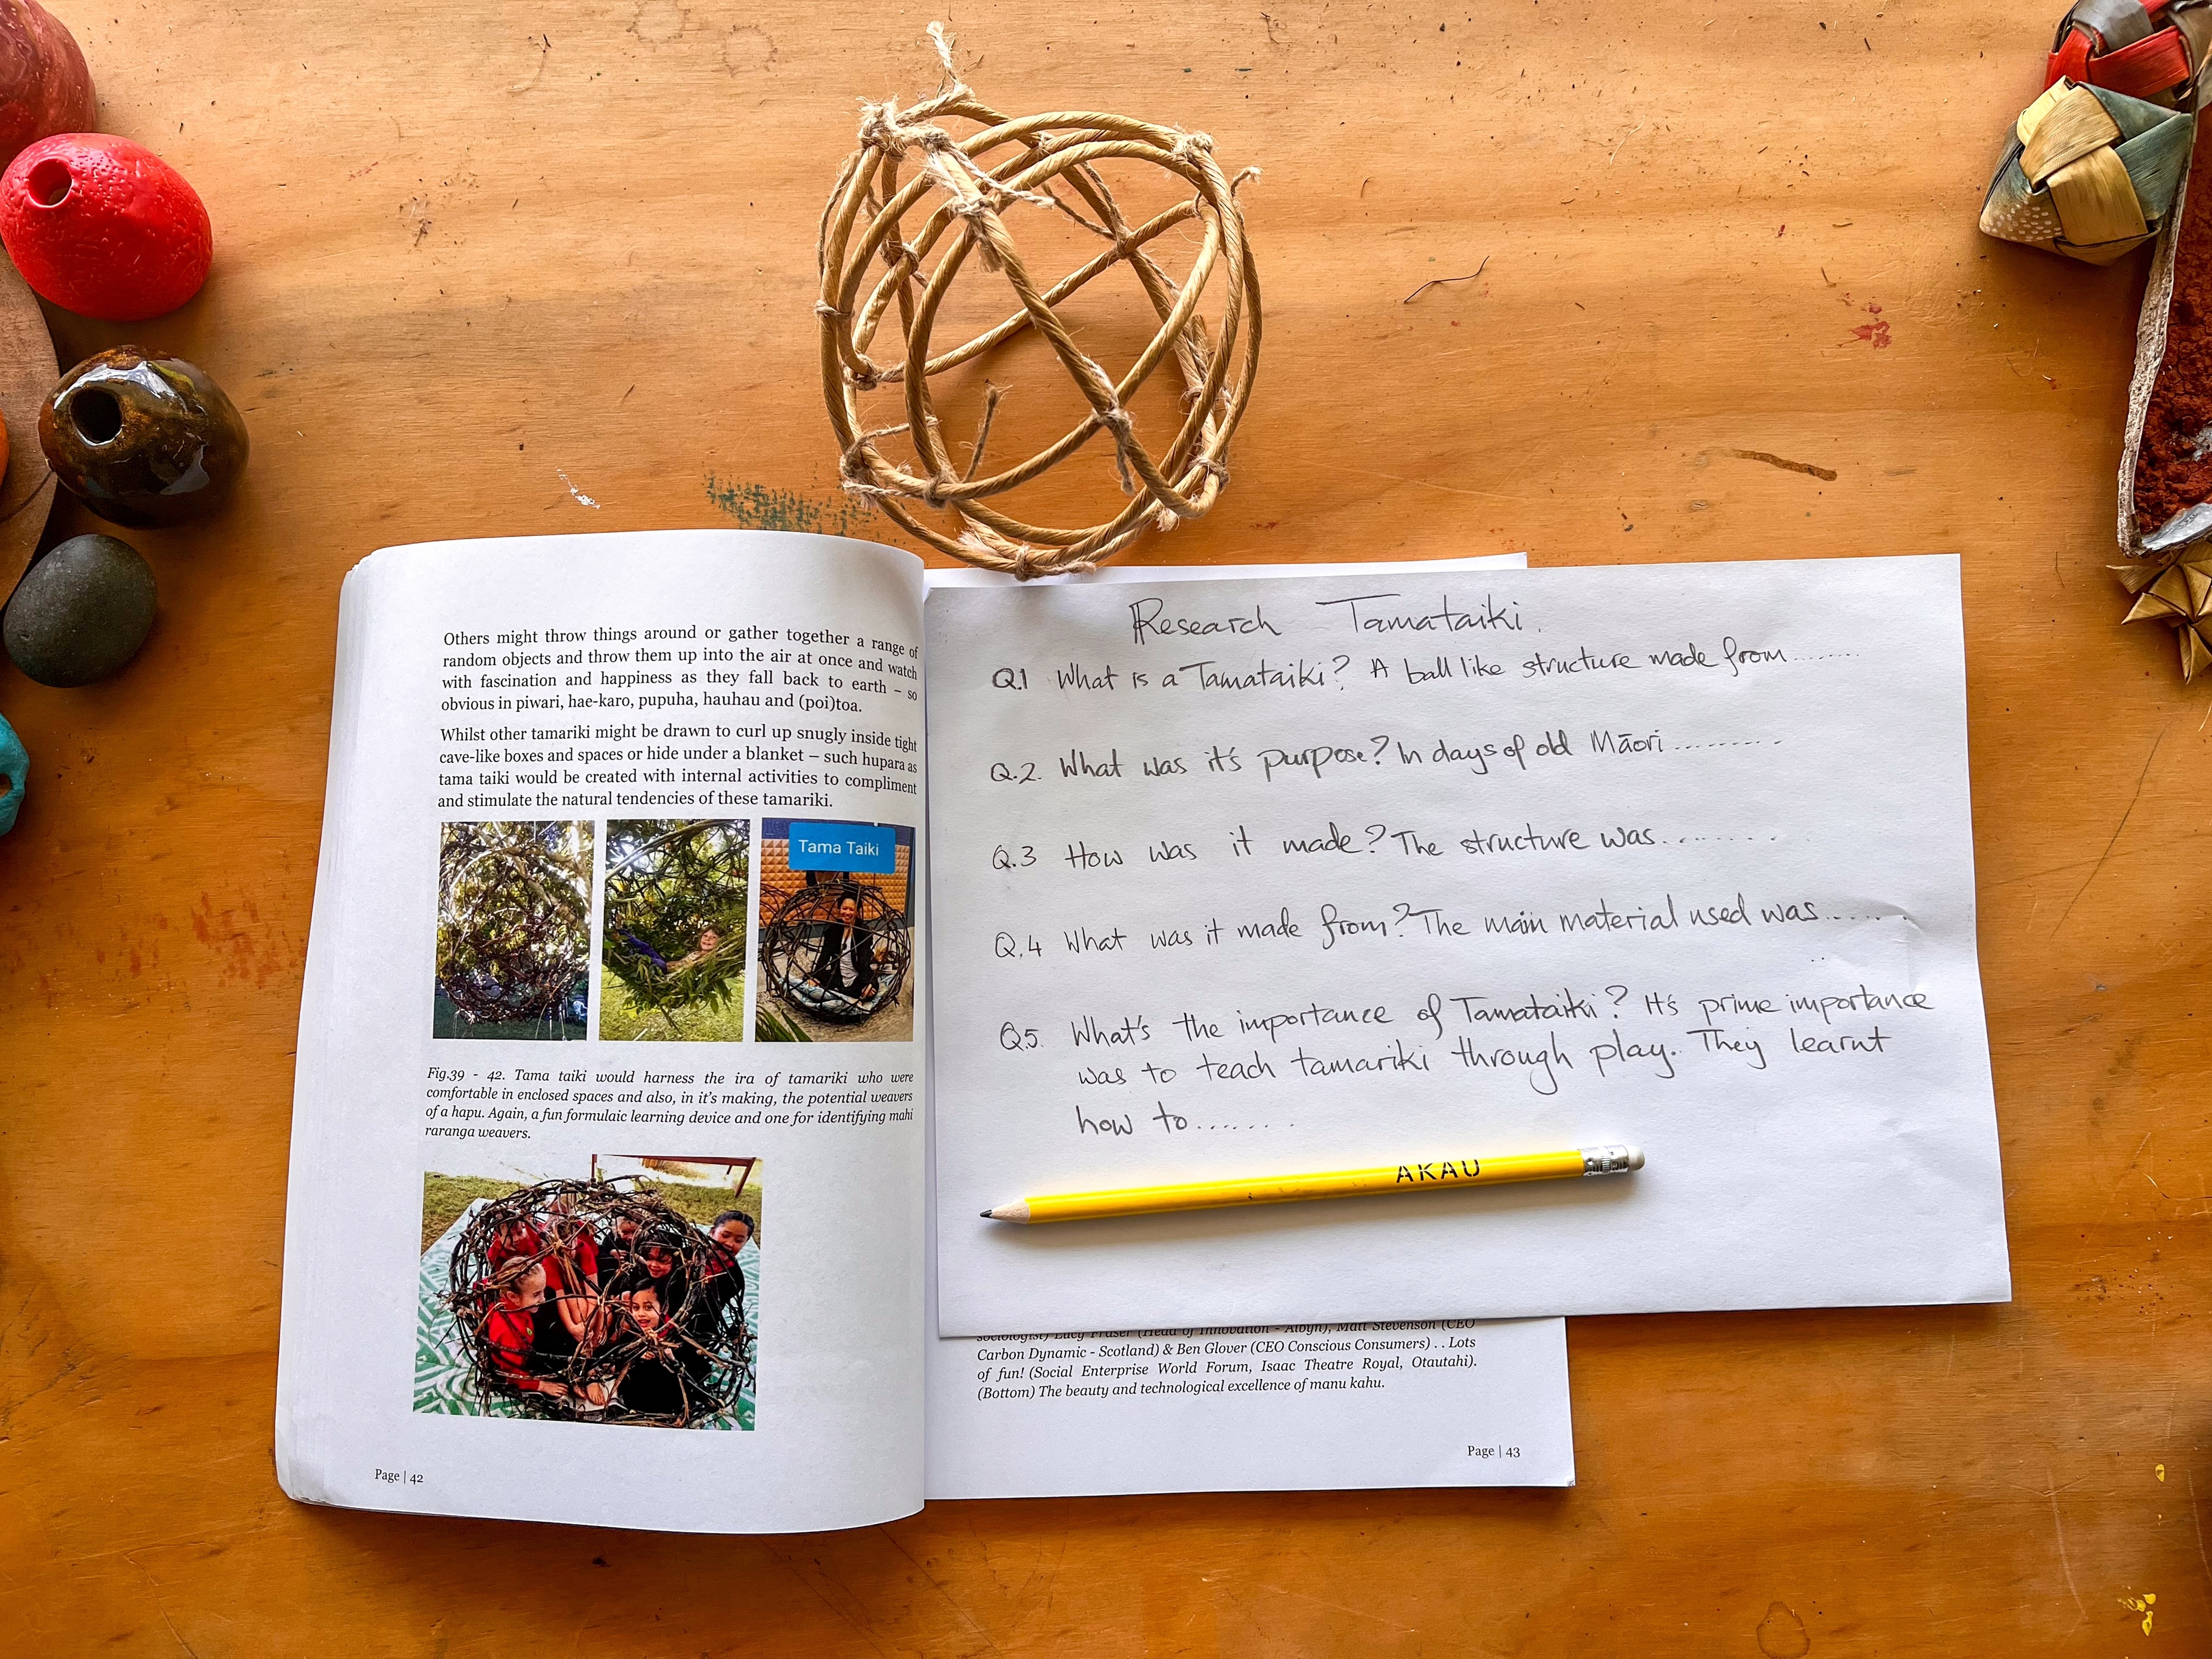 Others might throw things around or gather together a range of
random objects and throw them up into the air at once and watch
with fascination and happiness as they fall back to earth – so
obvious in piwari, hae-karo, pupuha, hauhau and (poi)toa.
Whilst other tamariki might be drawn to curl up snugly inside tight
cave-like boxes and spaces or hide under a blanket – such hupara as
tama taiki would be created with internal activities to compliment
and stimulate the natural tendencies of these tamariki.
Tama Taiki
Fig.39 - 42. Tama taiki would harness the ira of tamariki who were
comfortable in enclosed spaces and also, in it's making, the potential weavers
of a hapu. Again, a fun formulaic learning device and one for identifying mahi
raranga weavers.
Page | 42
Research Tamataiki.
Q.1 What is a Tamataiki? A ball like structure made from.......
Q.2. What was it's purpose? In days of old Māori.........
Q.3 How was it made? The structure was.........
Q.4 What was it made from? The main material used was......
Q5. What's the importance of Tamataiki? It's prime importance
was to teach tamariki through play. They learnt
how to.......
AKAU
sociologist) Lucy Fraser (Head of Innovation - Albyn), Matt Stevenson (CEO
Carbon Dynamic - Scotland) & Ben Glover (CEO Conscious Consumers) . . Lots
of fun! (Social Enterprise World Forum, Isaac Theatre Royal, Otautahi).
(Bottom) The beauty and technological excellence of manu kahu.
Page | 43